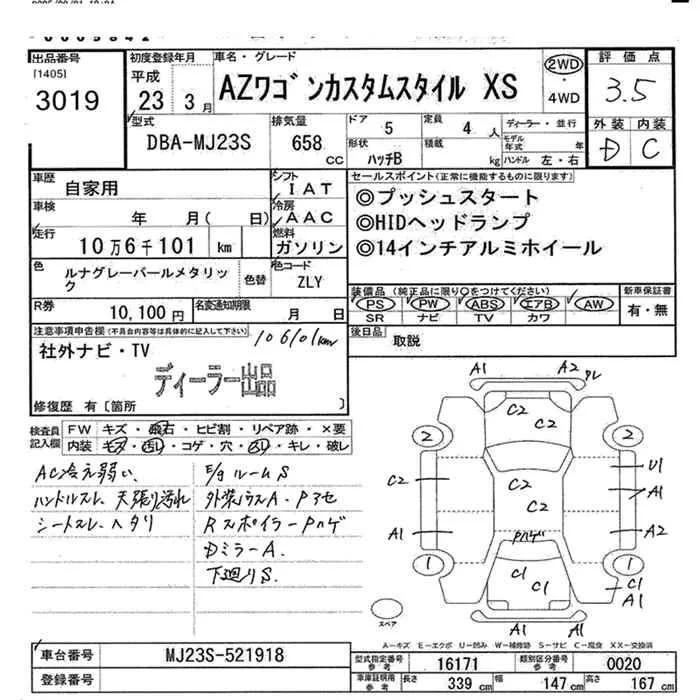 出品番号
[1405]
3019
初度登録年月
平成
23 3月
車名・グレード
AZワゴンカスタムスタイル XS
2WD
・
4WD
評価点
3.5
外装 内装
D C
型式
DBA-MJ23S
排気量
658 CC
ドア 5
定員 4 人
形状 ハッチB
積載 kg
ディーラー・並行
モデル年式 年
ハンドル 左・右
車歴 自家用
シフト IAT
車検 年 月( 日)
冷房 AAC
走行 10万6千101 km
燃料 ガソリン
色 ルナグレーパールメタリック
色替
色コード ZLY
R券 10,100円
名変通知期限 月 日
セールスポイント(正常に機能するものに限ります)
◎プッシュスタート
◎HIDヘッドランプ
◎14インチアルミホイール
装備品 (純正品に限り○をつけてください)
PS PW ABS エアB AW
SR ナビ TV カワ
新車保証書
有・無
後日品 取説
注意事項申告欄(不具合内容等は具体的に記入して下さい)
106101km
社外ナビ・TV
ディーラー出品
修復歴 有〔箇所 〕
検査員記入欄
FW キズ・飛石・ヒビ割・リペア跡・×要
内装 キズ・汚れ・コゲ・穴・スレ・キレ・破レ
AC冷え弱い、
ハンドルスレ、天張り汚れ
シートスレ、ヘタリ
E/gルームS
外装パネスA・Pヨセ
RスポイラーPハゲ
DミラーA.
下廻りS.
A1 A2
C2
2 2
C2 C2 U1
C2 A1
A1 Pハゲ A2
1 1
C1 C1 C1
A1
A1 A1
スペア
A-キズ E-エクボ U-凹み W-補修跡 S-サビ C-腐食 XX-交換済
車台番号 MJ23S-521918
登録番号
型式指定番号 参考 16171
類別区分番号 参考 0020
車庫証明用 参考 長さ 339 cm 幅 147 cm 高さ 167 cm